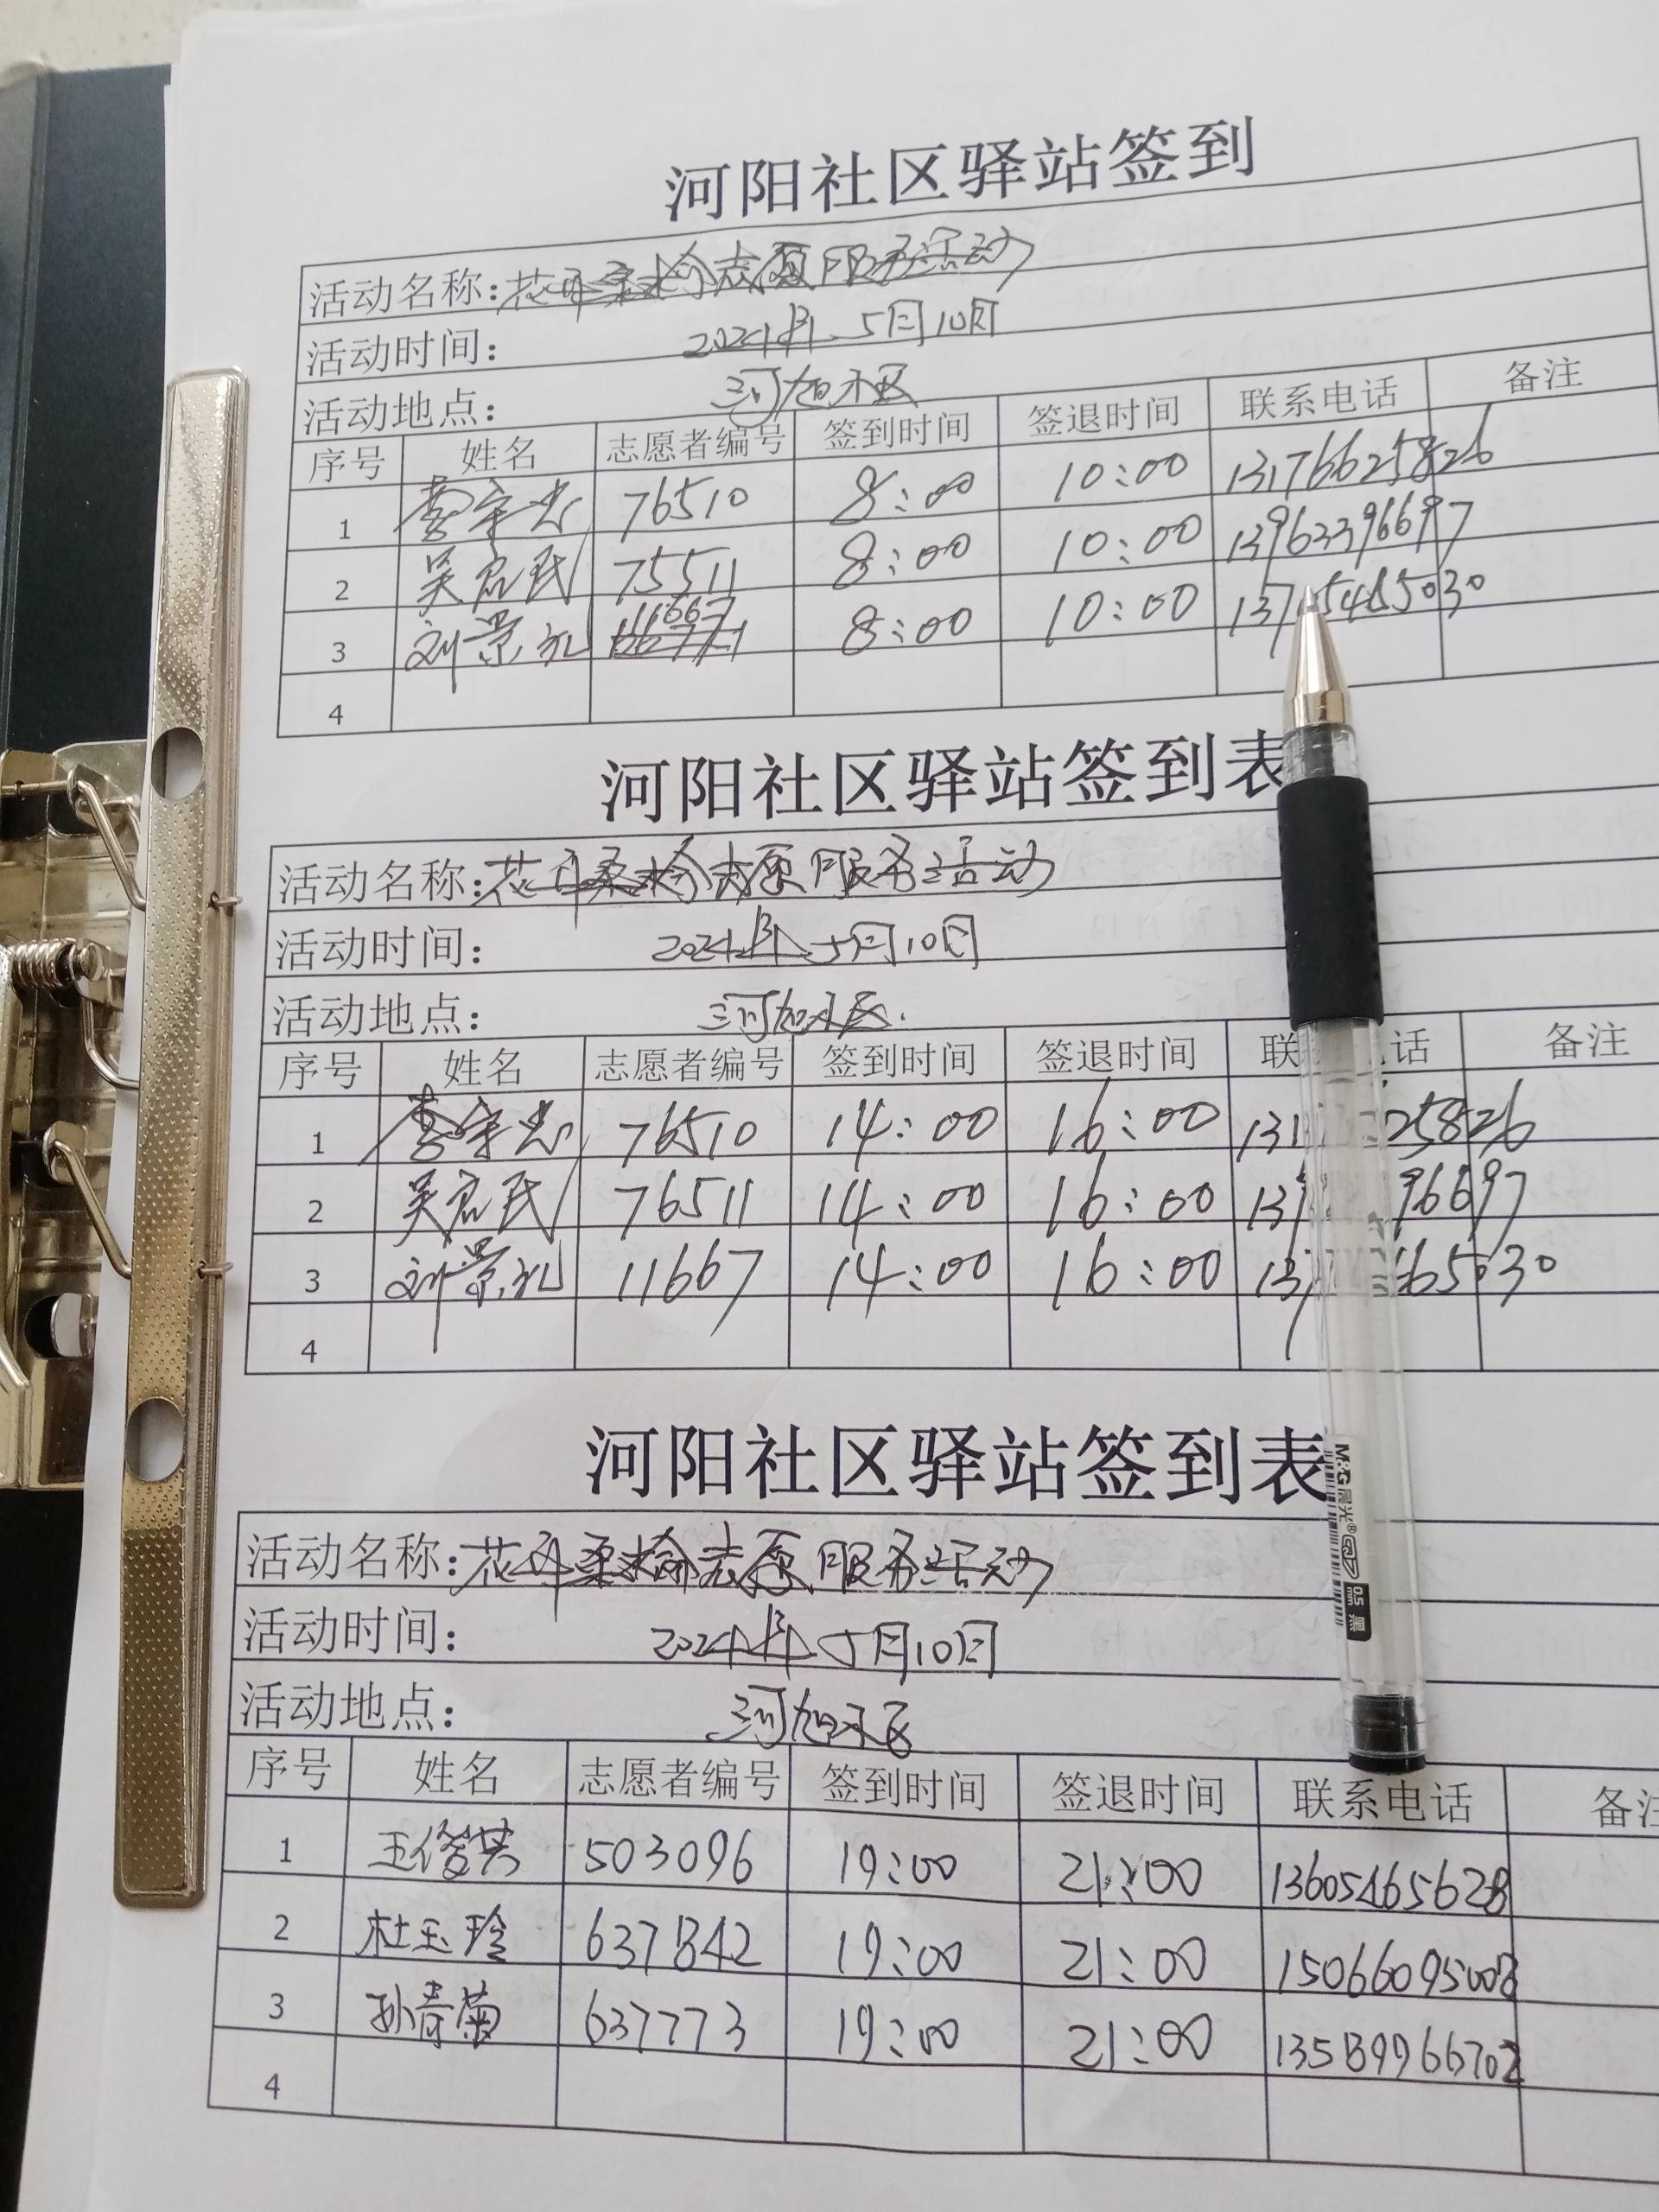 河阳社区驿站签到
活动名称：花开桑榆志愿服务活动
活动时间： 2024年5月10日
活动地点： 河旭社区
序号 姓名 志愿者编号 签到时间 签退时间 联系电话 备注
1 76510 8:00 10:00 13176625826
2 75511 8:00 10:00 13963396697
3 刘景礼 8:00 10:00
4
河阳社区驿站签到表
活动名称：花开桑榆志愿服务活动
活动时间： 2024年5月10日
活动地点：
序号 姓名 志愿者编号 签到时间 签退时间 联 话 备注
1 76510 14:00 16:00
2 76511 14:00 16:00
3 刘景礼 11667 14:00 16:00
4
河阳社区驿站签到表
活动名称：花开桑榆志愿服务活动
活动时间： 2024年5月10日
活动地点：
序号 姓名 志愿者编号 签到时间 签退时间 联系电话 备注
1 503096 19:00 21:00 13605465628
2 杜玉玲 637842 19:00 21:00 15066095008
3 孙青菊 637773 19:00 21:00 13589966702
4
M&G晨光® Q7 0.5 黑